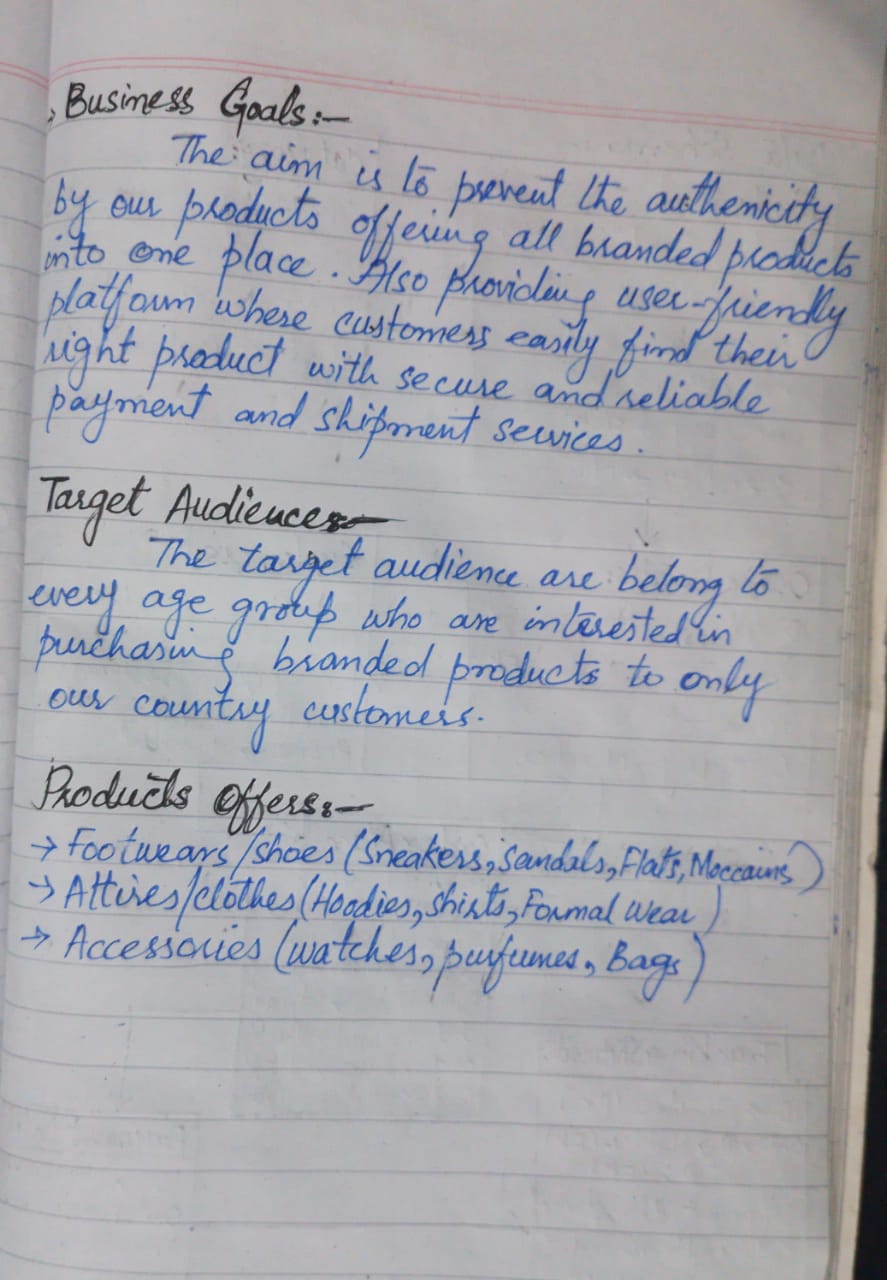 Business Goals:-
The aim is to prevent the authenicity
by our products offering all branded products
into one place. Also providing user-friendly
platform where customers easily find their
right product with secure and reliable
payment and shipment services.
Target Audience:-
The target audience are belong to
every age group who are interested in
purchasing branded products to only
our country customers.
Products Offers:-
→ Footwears/shoes (Sneakers, Sandals, Flats, Moccains)
→ Attires/clothes (Hoodies, shirts, Formal Wear)
→ Accessories (watches, purfumes, Bags)